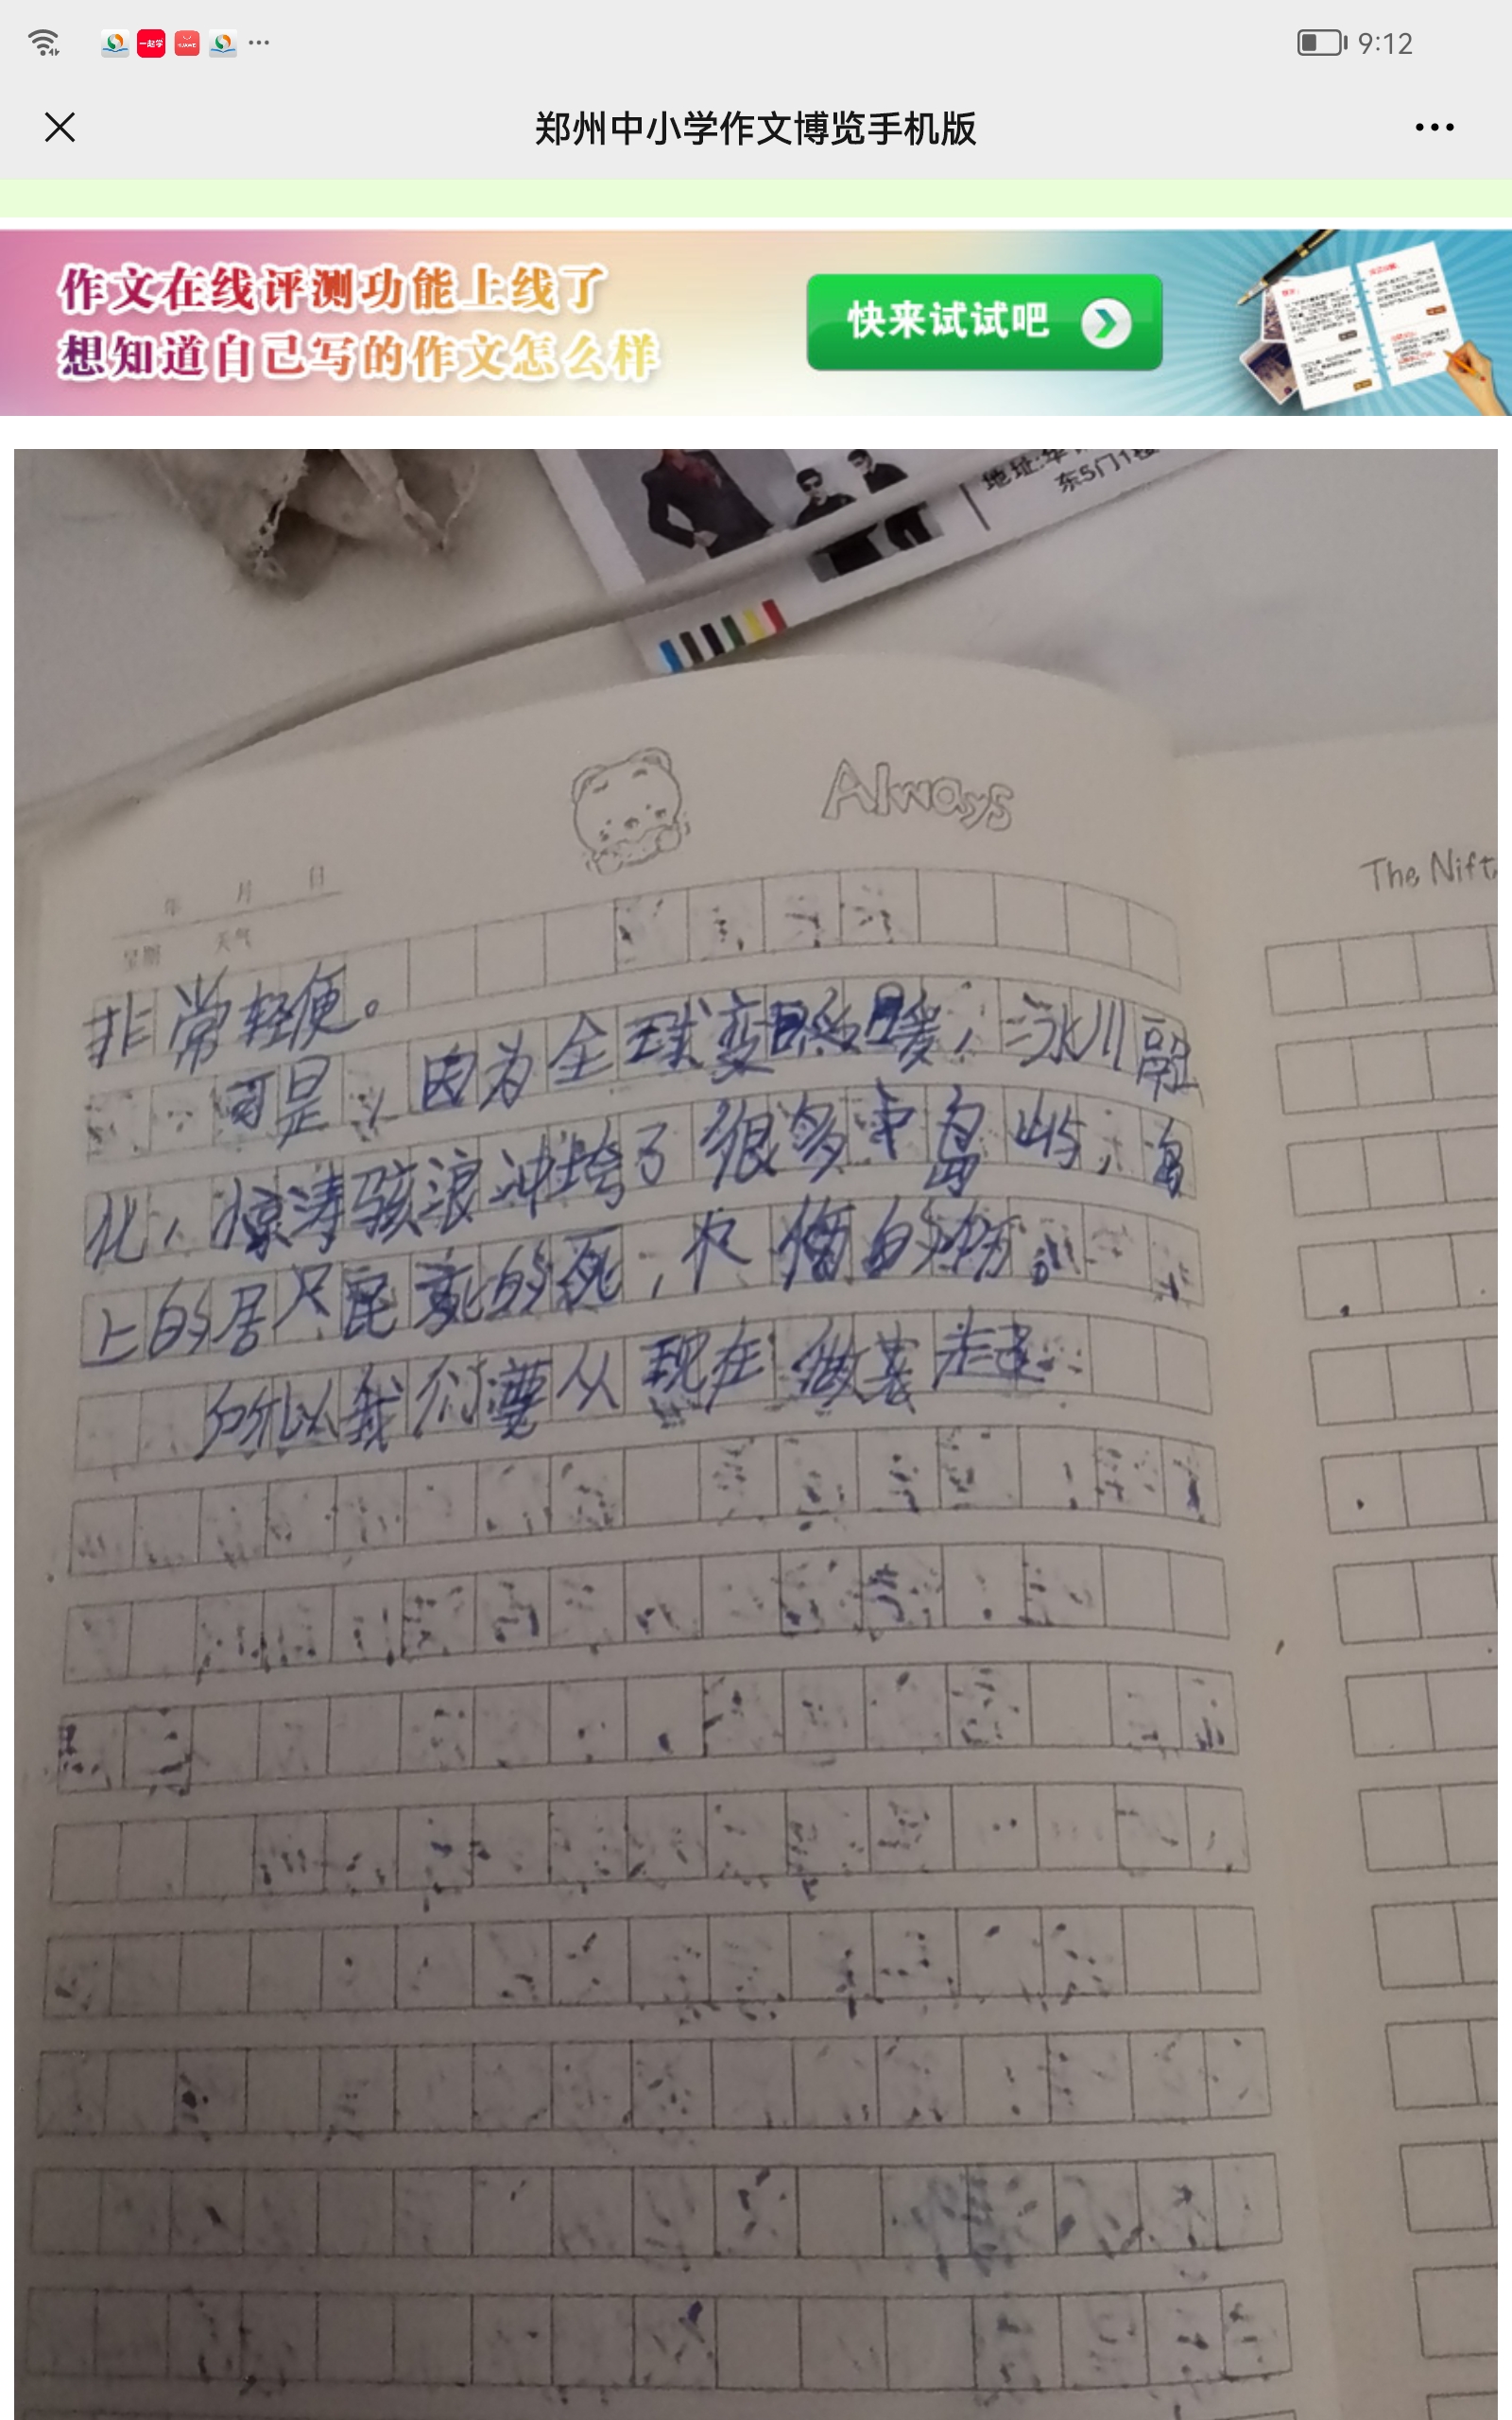 9:12
郑州中小学作文博览手机版
作文在线评测功能上线了
想知道自己写的作文怎么样
快来试试吧
一起学
地址:华
东5门1楼
Always
The Nift
年 月 日
星期 天气
非常轻便。
可是,因为全球变暖,冰川融
化,惊涛骇浪冲垮了很多岛屿,岛
上的居民死的死,伤的伤。
所以我们要从现在做起